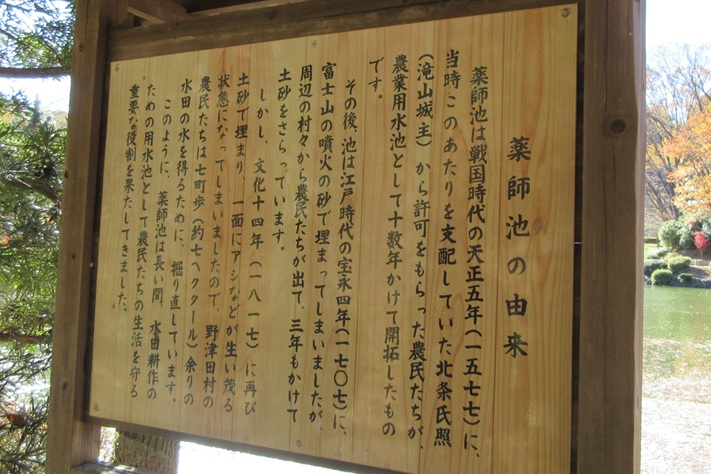 薬師池の由来
薬師池は戦国時代の天正五年（一五七七）に、
当時このあたりを支配していた北条氏照
（滝山城主）から許可をもらった農民たちが、
農業用水池として十数年かけて開拓したもの
です。
その後、池は江戸時代の宝永四年（一七〇七）に、
富士山の噴火の砂で埋まってしまいましたが、
周辺の村々から農民たちが出て、三年もかけて
土砂をさらっています。
しかし、文化十四年（一八一七）に再び
土砂で埋まり、一面にアシなどが生い茂る
状態になってしまいましたので、野津田村の
農民たちは七町歩（約七ヘクタール）余りの
水田の水を得るために、掘り直しています。
このように、薬師池は長い間、水田耕作の
ための用水池として農民たちの生活を守る
重要な役割を果たしてきました。